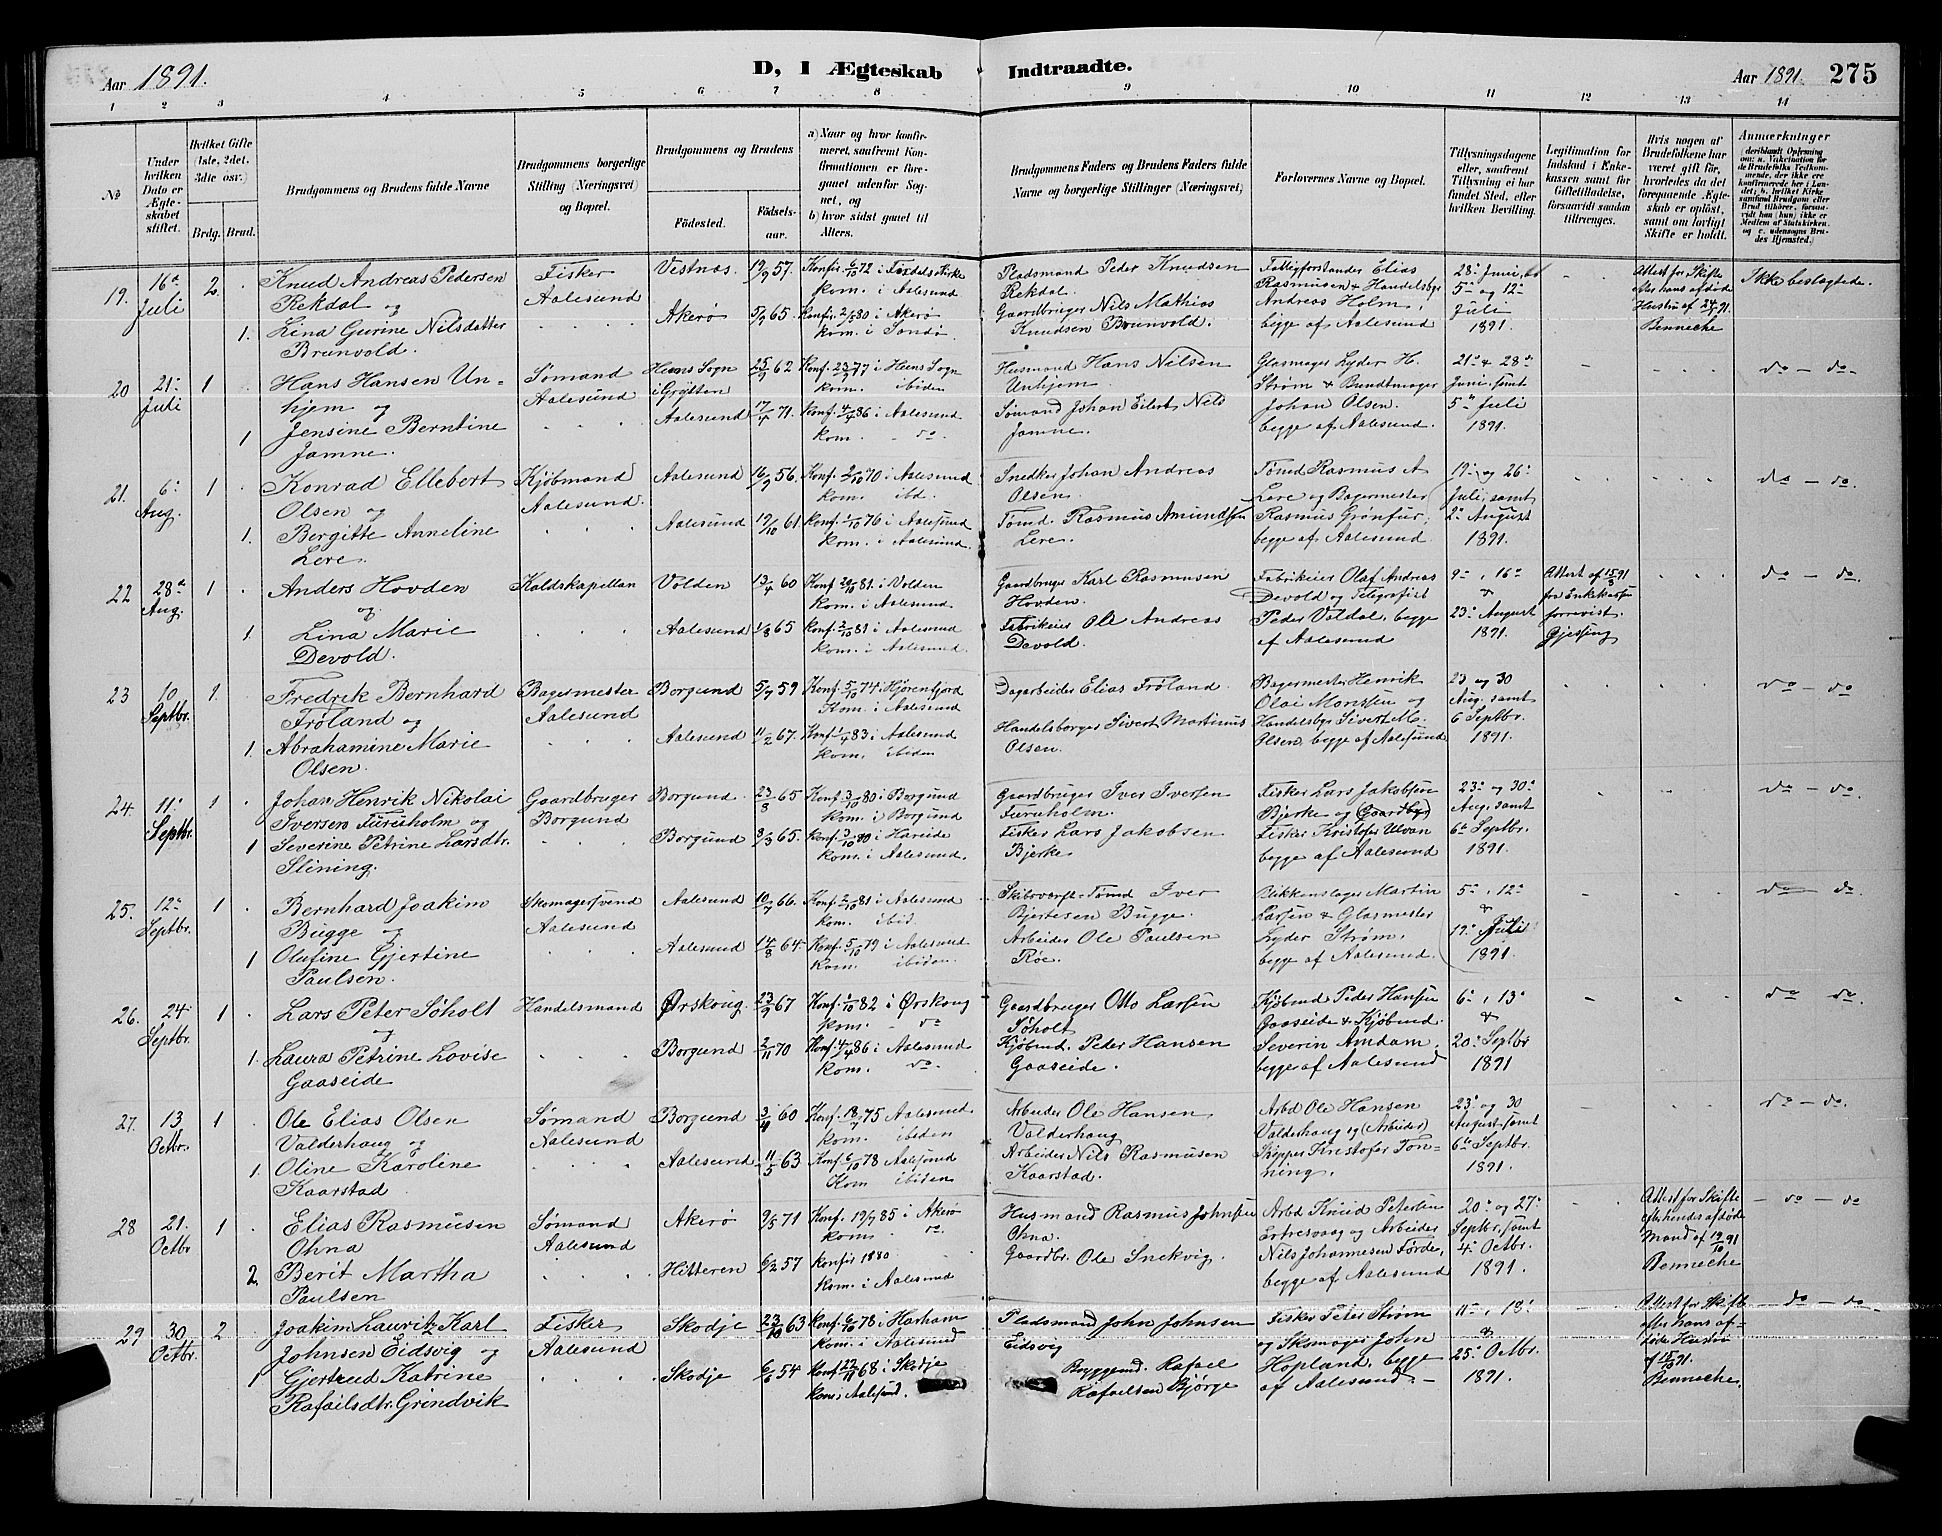 Aar 1891.
D, I Ægteskab Indtraadte.
Aar 1891. 275
1 2 3 4 5 6 7 8 9 10 11 12 13 14
No
Under hvilken Dato er Ægteskabet stiftet.
Hvilket Gifte (1ste, 2det, 3die osv.)
Brdg. Brud.
Brudgommens og Brudens fulde Navne
Brudgommens borgerlige Stilling (Næringsvei) og Bopæl.
Brudgommens og Brudens
Fødested. Fødselsaar.
a) Naar og hvor konfirmeret, saafremt Konfirmationen er foregaaet udenfor Sognet, og
b) hvor sidst gaaet til Alters.
Brudgommens Faders og Brudens Faders fulde Navne og borgerlige Stillinger (Næringsvei)
Forlovernes Navne og Bopæl.
Tillysningsdagene eller, saafremt Tillysning ei har fundet Sted, efter hvilken Bevilling.
Legitimation for Indskud i Enkekassen samt for Giftetilladelse, forsaavidt saadan tiltrænges.
Hvis nogen af Brudefolkene har været gift før, hvorledes da det foregaaende Ægteskab er opløst, samt om lovligt Skifte er holdt.
Anmærkninger
19. 16de Juli 2. 1.
Knud Andreas Pedersen
Rekdal og
Lina Gurine Nilsdatter
Brunvold.
Fisker
Aalesund
Vestnæs. 19/9 57.
Akerø 5/9 65.
Konfir. 6/10 72 i Fjordels Kirke
kom. i Aalesund
Konfir. 2/7 80 i Akerø
kom. i Sandø.
Pladsmand Peder Knudsen
Rekdal.
Gaardbruger Nils Mathias
Knudsen Brunvold.
Fattigforstander Elias
Rasmusen & Handelsbgr
Andreas Holm,
begge af Aalesund
28de Juni,
5te og 12te
Juli
1891.
Attest for Skifte
efter hans afdøde
Hustru af 24/6 91.
Benneche
Ikke beslægtede.
20 21de Juli 1 1
Hans Hansen Un-
hjem og
Jensine Berntine
Jamne.
Sømand
Aalesund
Heens Sogn
i Grytten 25/9 62
Aalesund 17/4 71.
Konf. 23/9 77 i Heens Sogn
kom. ibiden
Konf. 4/4 86 i Aalesund
kom. - do
Husmand Hans Nilsen
Unhjem.
Sømand Johan Eilert Nils
Jamne.
Glasmager Lyder H.
Strøm & Bundtmager
Johan Olsen.
begge af Aalesund.
21de & 28de
Juni, samt
5te Juli
1891.
do - do.
21. 6te Aug. 1 1.
Konrad Ellebert
Olsen og
Bergitte Anneline
Lere.
Kjøbmand
Aalesund.
Aalesund 16/9 56.
Aalesund 19/10 61
Konf. 2/10 70 i Aalesund
kom. ibd.
Konf. 1/10 76 i Aalesund
kom. i Aalesund.
Snedker Johan Andreas
Olsen.
Tømd. Rasmus Amundsen
Lere.
Tømd Rasmus A
Lere og Bagermester
Rasmus Grønfur,
begge af Aalesund.
19de og 26de
Juli, samt
2de August
1891.
do - do.
22 28de Aug. 1 1
Anders Hovden
og
Lina Marie
Devold.
Koldskapellan
Volden 13/4 60
Aalesund 1/8 65
Konf. 29/10 81 i Volden
Kom. i Aalesund
Konf. 2/10 81 i Aalesund
kom. i Aalesund.
Gaardbruger Karl Rasmusen
Hovden.
Fabrikeier Ole Andreas
Devold.
Fabrikeier Olaf Andreas
Devold og Telegrafist
Peder Valdal, begge
af Aalesund
9de, 16de
&
23de August
1891.
Attest af 15/8 91
fra Enkekassen
forevist.
Gjessing
do - do.
23 10 Septbr. 1. 1.
Fredrik Bernhard
Frøland og
Abrahamine Marie
Olsen.
Bagermester
Aalesund
Borgund 5/7 59
Aalesund 11/2 67.
Konf. 5/7 74 i Hjørenfjord
Kom. i Aalesund
Konf. 1/4 83 i Aalesund
kom. ibiden
Dagarbeider Elias Frøland.
Handelsborger Sivert Martinus
Olsen.
Bagermester Henrik
Olai Monssen og
Handelsbgr Sivert M.
Olsen, begge af Aalesund
23 og 30
Aug. samt
6 Septbr.
1891.
do - do.
24. 11te Septbr. 1 1
Johan Henrik Nikolai
Iversen Furuholm og
Severine Petrine Larsdtr.
Slining.
Gaardbruger
Borgund
Borgund. 23/8 65
Borgund 8/3 65.
Konf. 3/10 80 i Borgund
kom. i Borgund
konf. 3/10 80 i Hareide
kom. i Aalesund.
Gaardbruger Iver Iversen
Furuholm.
Fisker Lars Jakobsen
Bjerke
Fisker Lars Jakobsen
Bjerke og (Gaardbr.)
Fisker Kristofer Ulvan
begge af Aalesund
23de og 30te
Aug. samt
6te Septbr.
1891.
do - do.
25. 12te Septbr. 1 1
Bernhard Joakim
Bugge og
Olufine Gjertine
Paulsen.
Skomagersvend
Aalesund
Aalesund 10/7 66.
Aalesund 14/8 64.
Konf. 2/10 81 i Aalesund
kom. ibid.
Konf. 5/10 79 i Aalesund
kom. ibiden.
Skibsværft-Tømd Iver
Bjertesen Bugge.
Arbeider Ole Paulsen
Røe.
Blikkenslager Martin
Larsen & Glasmester
Lyder Strøm,
begge af Aalesund.
5te, 12te
&
19de Juli
1891.
do do
26. 24 Septbr. 1 1.
Lars Peter Søholt
og
Laura Petrine Lovise
Gaaseide
Handelsmand
Ørskoug. 23/9 67
Borgund 2/11 70
Konf. 1/10 82 i Ørskoug
kom. - do
Konf. 4/4 86 i Aalesund
kom. do.
Gaardbruger Otto Larsen
Søholt
Kjøbmd. Peder Hansen
Gaaseide.
Kjøbmd. Peder Hansen
Gaaseide & Kjøbmd.
Severin Amdam,
begge af Aalesund
6te, 13de
&
20de Septbr
1891
do do.
27. 13 Octbr. 1 1.
Ole Elias Olsen
Valderhaug og
Oline Karoline
Kaarstad
Sømand
Aalesund
Borgund 3/11 60
Aalesund 11/5 63
Konf. 18/7 75 Aalesund
kom. ibiden
Konf. 6/10 78 Aalesund
Kom ibiden
Arbeider Ole Hansen
Valderhaug
Arbeider Nils Rasmusen
Kaarstad.
Arbd Ole Hansen
Valderhaug og (Arbeider)
Skipper Kristofer Ton-
ning.
23de og 30
August samt
6te Septbr.
1891.
do - do.
28 21. Octbr 1 2.
Elias Rasmusen
Ohna
Berit Martha
Paulsen
Sømand
Aalesund
Akerø 9/5 71
Hitteren 6/2 57
Konf. 19/7 85 i Akerø
kom. do.
konfir 1880
kom. i Aalesund
Husmand Rasmus Johnsen
Ohna.
Gaardbr. Ole Snekvig.
Arbd Knud Petersen
Ertresvaag og Arbeider
Nils Johannesen Førde,
begge af Aalesund
20de og 27de
Septbr, samt
4de Octbr.
1891.
Attest for Skifte
efter hendes afdøde
Mand af 19/10 91
Benneche
- do - do
29 30 Octbr. 2 1
Joakim Lauritz Karl
Johnsen Eidsvig og
Gjertrud Katrine
Rafaelsdtr. Grindvik
Fisker
Aalesund
Skodje 23/10 63
Skodje 6/6 54
Konf. 6/10 78 i Harham
kom. i Aalesund
Konf. 22/11 68 i Skodje
kom. i Aalesund.
Pladsmand John Johnsen
Eidsvig
Byggemd. Rafael
Rafaelsen Bjørge
Fisker Peter Strøm
og Skomager John
Hopland, begge
af Aalesund.
11te, 18de
&
25de Octbr.
1891.
Attest for Skifte
efter hans af-
døde Hustru
af 15/10 91.
Benneche.
- do - do -